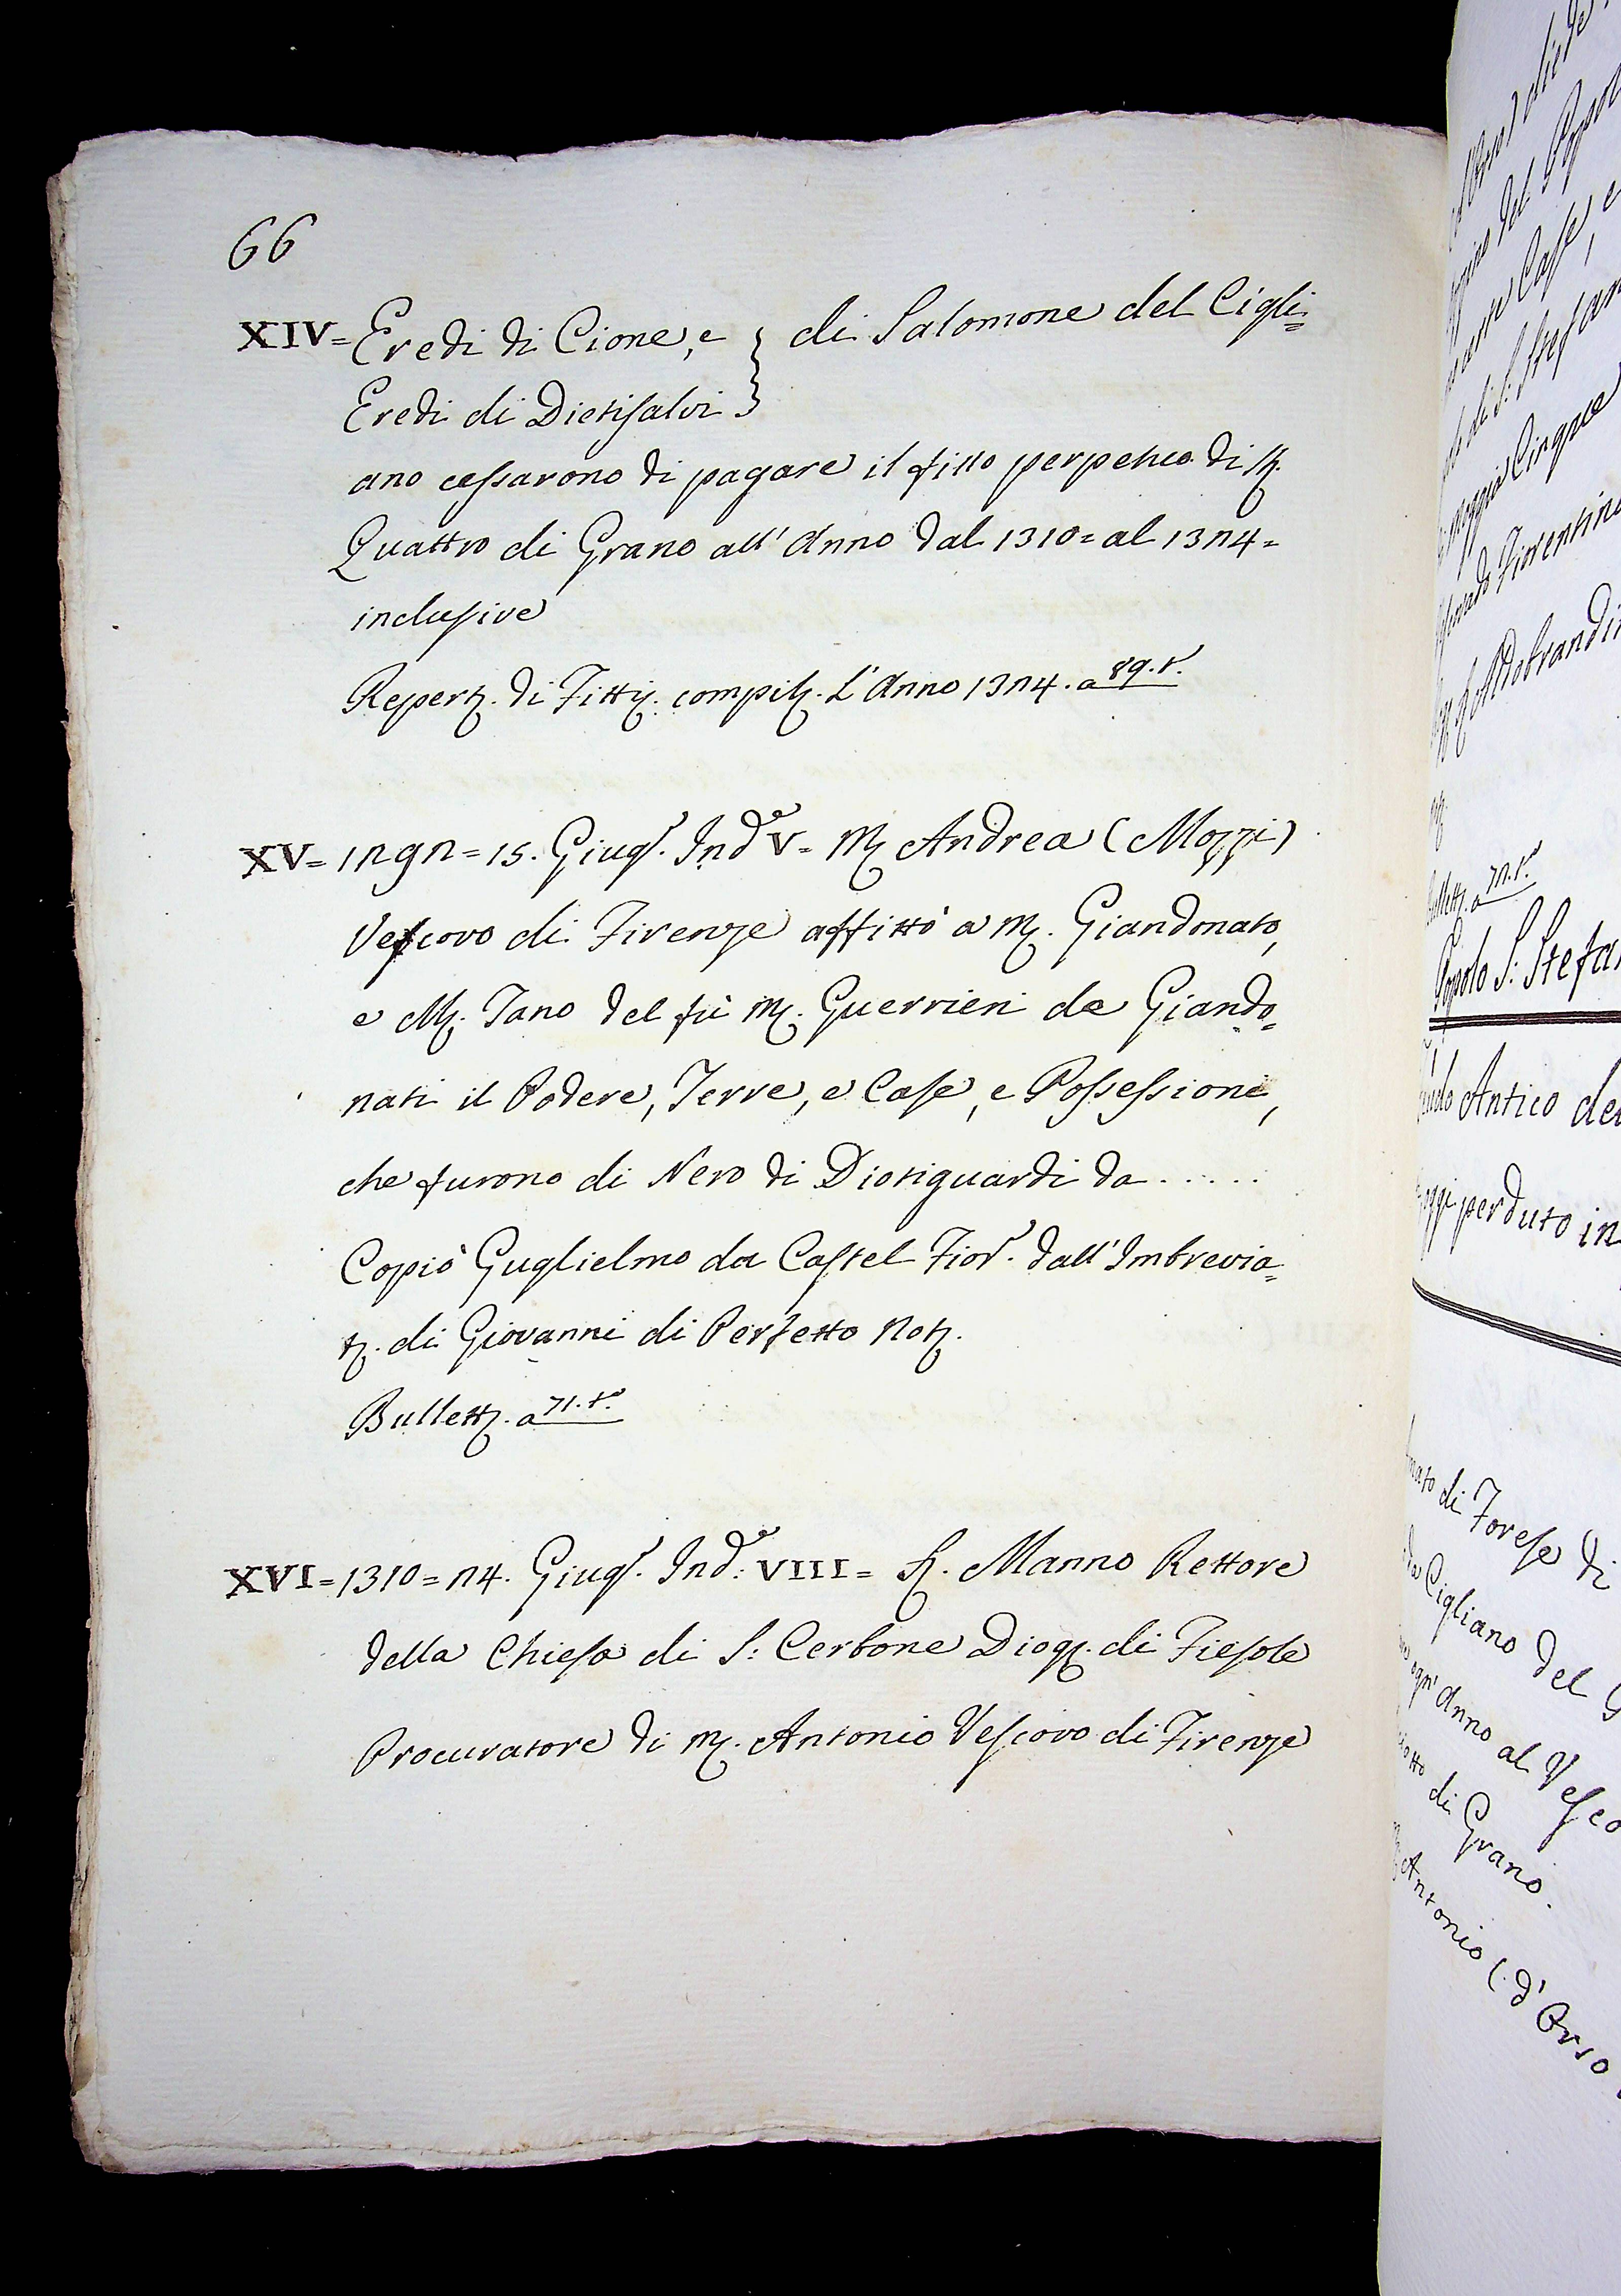 66
XIV= Eredi di Cione, e } di Salomone del Cigli=
Eredi di Dietisalvi }
ano cessarono di pagare il fitto perpetuo di St.
Quattro di Grano all' Anno dal 1310= al 1324=
inclusive
Repert. di Fitti. compil. L'Anno 1324. a 89. t.
XV= 1292= 15. Giug. Ind.e V= M. Andrea (Mozzi)
Vescovo di Firenze affittò a M. Giandonato,
e M. Tano del fù M. Guerrieri de Giando=
nati il Podere, Terre, e Case, e Possessioni,
che furono di Nero di Diotiguardi da . . . . .
Copiò Guglielmo da Castel Fior. dall' Imbrevia=
t. di Giovanni di Perfetto Not.
Bullett. a 71. t.
XVI= 1310= 24. Giug. Ind.e VIII= S. Manno Rettore
della Chiesa di S: Cerbone Dioc. di Fiesole
Procuratore di M. Antonio Vescovo di Firenze
del
Case, e
di S: Stefan
Cinque
Fiorentino
Aldobrandi
Bullett. a 72. t.
Popolo S: Stefa
Antico de
perduto in
di Forese di
Cigliano del G
ogn' Anno al Vesco
di Grano.
Antonio (d'Orso